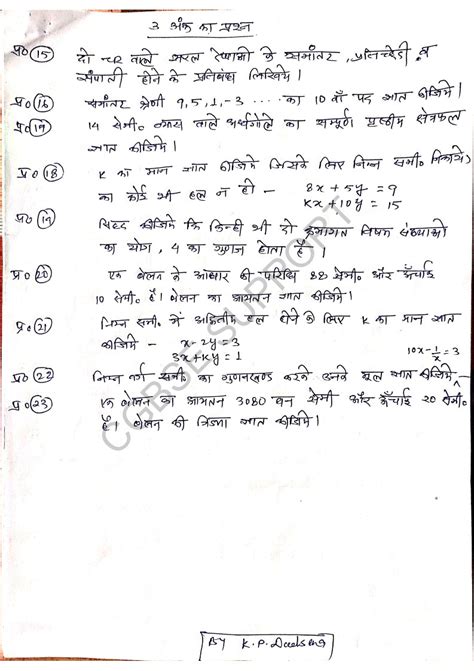 3 अंक का प्रश्न
प्र० (15) दो चर वाले सरल रेखाओं के समांतर, प्रतिच्छेदी व
संपाती होने के प्रतिबंध लिखिये।
प्र० (16) समांतर श्रेणी 9, 5, 1, -3 .... का 10 वाँ पद ज्ञात कीजिये।
प्र० (17) 14 सेमी० व्यास वाले अर्धगोले का सम्पूर्ण पृष्ठीय क्षेत्रफल
ज्ञात कीजिये।
प्र० (18) K का मान ज्ञात कीजिये जिसके लिए निम्न समी० निकायों
का कोई भी हल न हो - 3x + 5y = 9
Kx + 10y = 15
प्र० (19) सिद्ध कीजिये कि किन्हीं भी दो क्रमागत विषम संख्याओं
का योग, 4 का गुणज होता है।
प्र० (20) एक बेलन के आधार की परिधि 88 सेमी० और ऊँचाई
10 सेमी० है। बेलन का आयतन ज्ञात कीजिये।
प्र० (21) निम्न समी० में अद्वितीय हल होने के लिए K का मान ज्ञात
कीजिये - x - 2y = 3
3x + Ky = 1
10x - 1/x = 3
प्र० (22) निम्न वर्ग समी० का गुणनखण्ड करके उनके मूल ज्ञात कीजिये -
प्र० (23) एक बेलन का आयतन 3080 घन सेमी और ऊँचाई 20 सेमी०
है। बेलन की त्रिज्या ज्ञात कीजिये।
CGBSE SUPPORT
BY K.P.